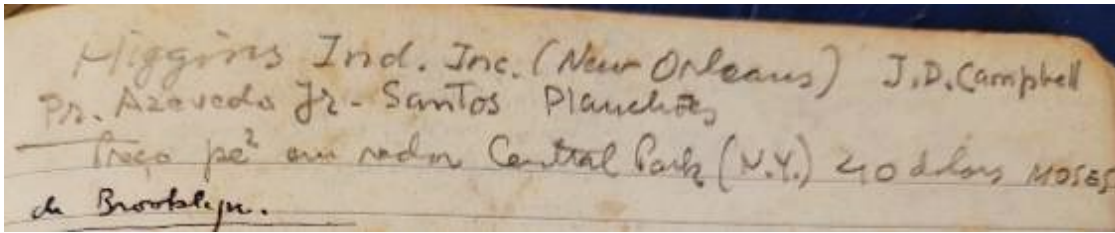 Higgins Ind. Inc. (New Orleans) J.D. Campbell
Pr. Azevedo Jr. - Santos Planchões
Preço pe² em redor Central Park (N.Y.) 40 dolars MOSES
de Brooklyn.